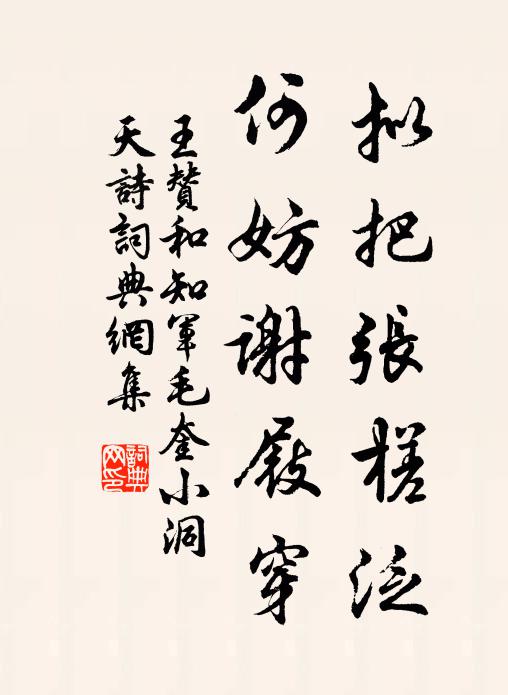 拟把張槎泛
何妨謝屐穿
王贊和知軍毛奎小洞
天詩詞典網集
詞典
网印